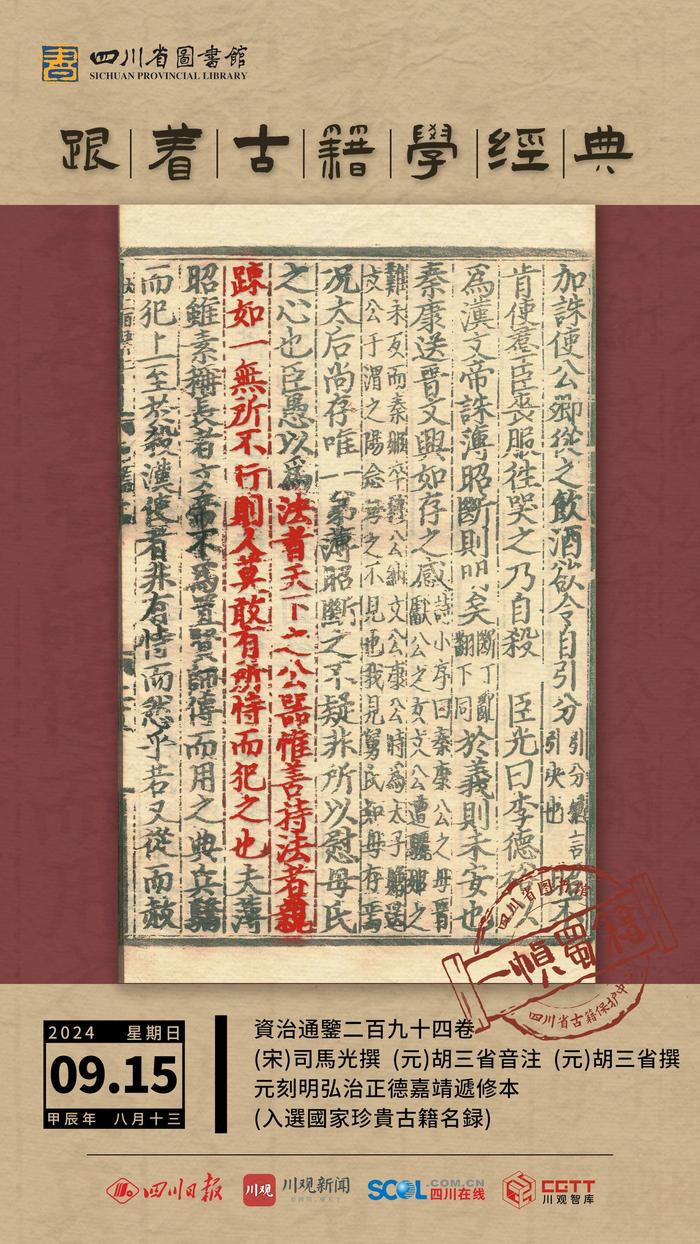 四川省圖書館
SICHUAN PROVINCIAL LIBRARY
跟着古籍學經典
加誅使公卿從之飲酒欲令自引分引分猶言引決也昭不
肯使羣臣喪服徃哭之乃自殺 臣光曰李德裕以
爲漢文帝誅薄昭斷則明矣斷丁亂翻下同於義則未安也
秦康送晉文興如存之感詩小序曰秦康公之母晉獻公之女文公遭驪姬之
難未反而秦姬卒穆公納文公康公時為太子贈送文公于渭之陽念母之不見也我見舅氏如母存焉
況太后尚存唯一弟薄昭斷之不疑非所以慰母氏
之心也臣愚以爲法者天下之公器惟善持法者親
踈如一無所不行則人莫敢有所恃而犯之也夫薄
昭雖素稱長者文帝不爲置賢師傅而用之典兵驕
而犯上至於殺漢使者非有恃而然乎若又從而赦
四川省图书馆
一幀蜀籍
四川省古籍保护中心
2024 星期日
09.15
甲辰年 八月十三
資治通鑒二百九十四卷
(宋)司馬光撰 (元)胡三省音注 (元)胡三省撰
元刻明弘治正德嘉靖遞修本
(入選國家珍貴古籍名録)
四川日报
川观 川观新闻
SCOL.COM.CN 四川在线
CGTT 川观智库